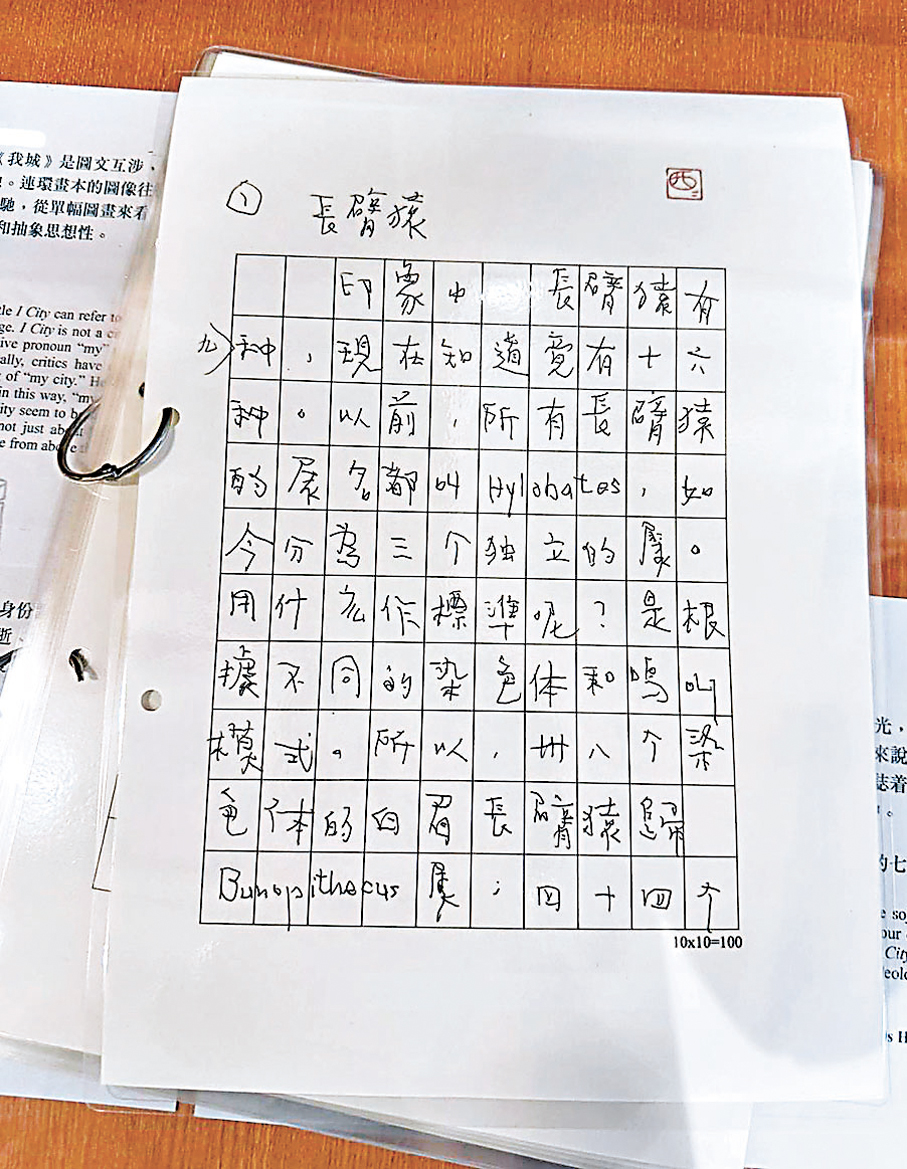 《我城》是圖文互涉、
。連環畫本的圖像往
馳，從單幅圖畫來看
和抽象思想性。
tle I City can refer to
ge. I City is not a
ive pronoun “my”
ally, critics have
of “my city.”
in this way, “my
ity seem to
not just about
e from above
身份
逝、
西
①
長臂猿
印象中 長臂猿有
九
种，現在知道竟有十六
种。以前，所有長臂猿
的属名都叫Hylobates，如
今分為三个独立的属。
用什么作標準呢？是根
據不同的染色体和鳴叫
模式。所以，卅八个染
色体的白眉長臂猿歸
Bunopithecus属；四十四个
10x10=100
光，
來說
誌着
。
的七
our
City
s H